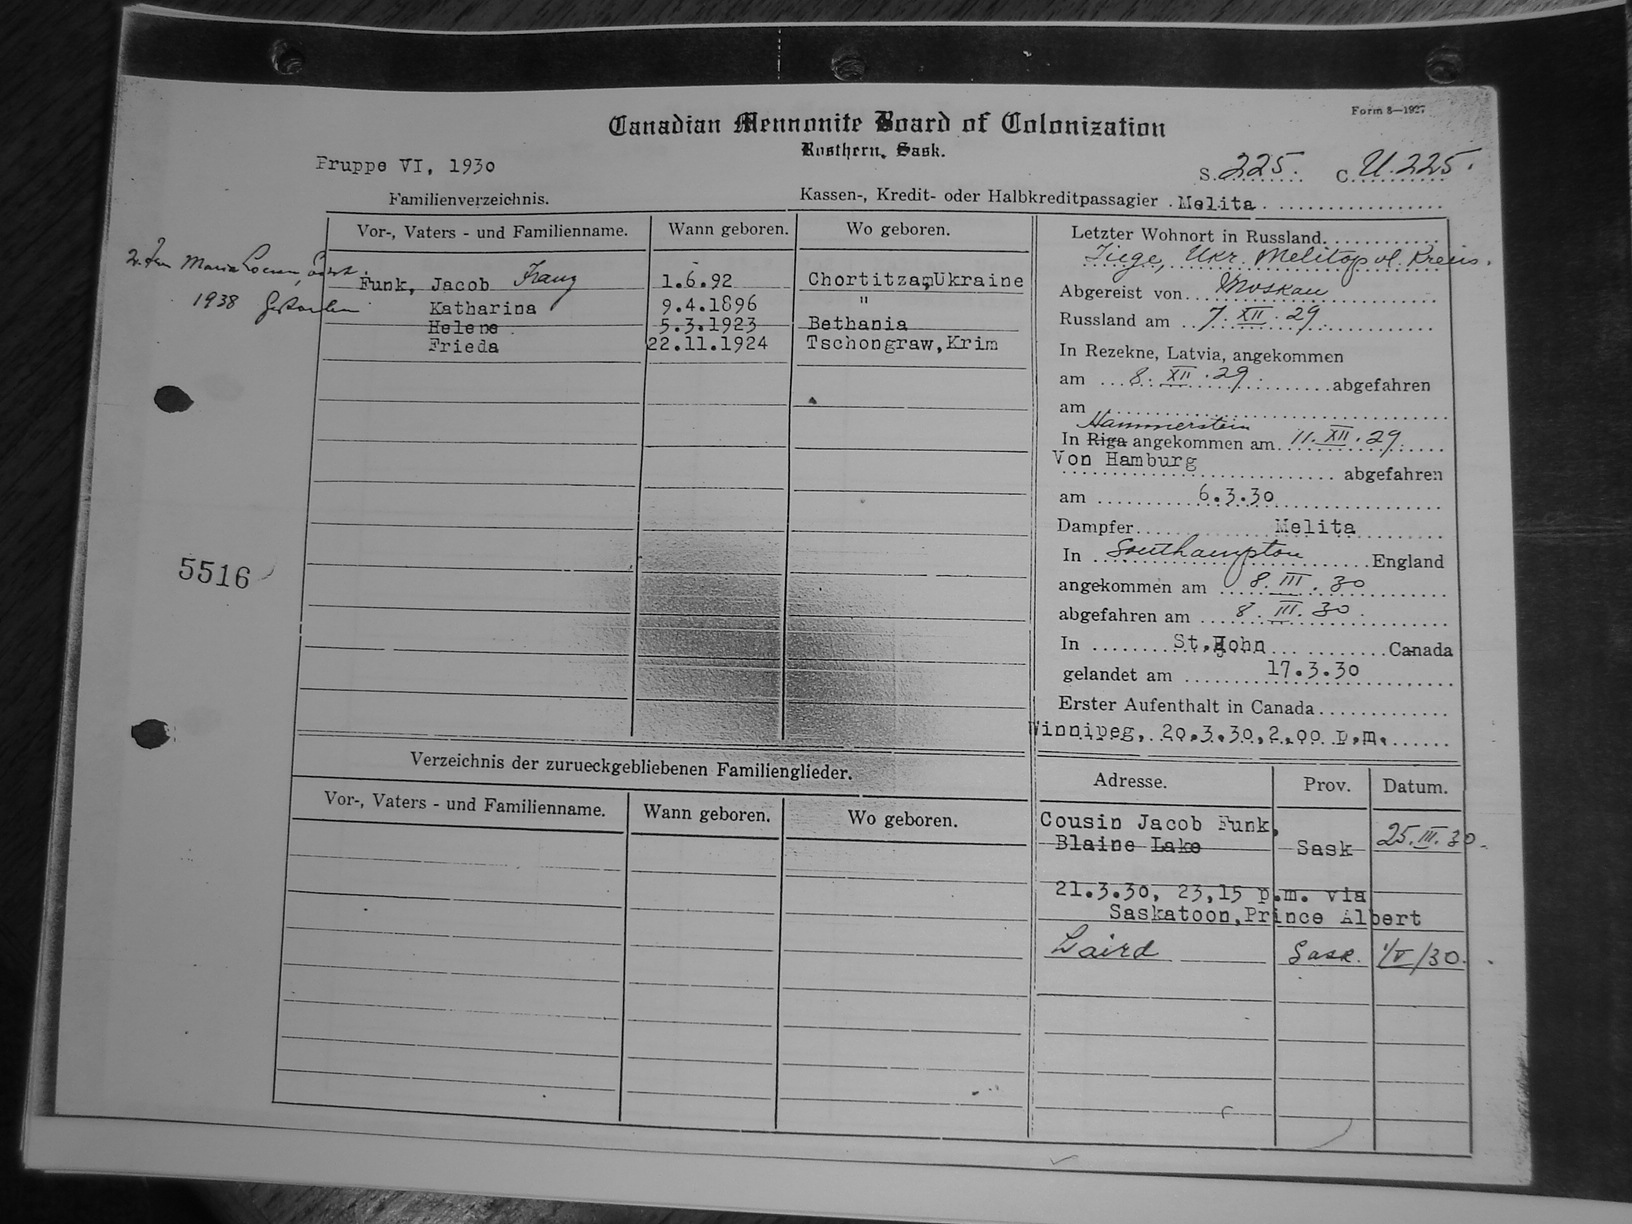 Form 8—1927
Canadian Mennonite Board of Colonization
Rosthern, Sask.
Pruppe VI, 1930
S. 225. C. U. 225.
Familienverzeichnis.
Kassen-, Kredit- oder Halbkreditpassagier Melita
Vor-, Vaters - und Familienname. Wann geboren. Wo geboren.
Maria
1938
Funk, Jacob Franz 1.6.92 Chortitza, Ukraine
Katharina 9.4.1896 "
Helene 5.3.1923 Bethania
Frieda 22.11.1924 Tschongraw, Krim
5516
Letzter Wohnort in Russland
Tiege, Ukr. Melitopol Kreis.
Abgereist von Moskau
Russland am 7. XII. 29.
In Rezekne, Latvia, angekommen
am 8. XII. 29. abgefahren
am
Hammerstein
In Riga angekommen am 11. XII. 29.
Von Hamburg abgefahren
am 6.3.30
Dampfer Melita
In Southampton England
angekommen am 8. III. 30
abgefahren am 8. III. 30.
In St. John Canada
gelandet am 17.3.30
Erster Aufenthalt in Canada
Winnipeg, 20.3.30, 2.00 p.m.
Verzeichnis der zurueckgebliebenen Familienglieder.
Vor-, Vaters - und Familienname. Wann geboren. Wo geboren.
Adresse. Prov. Datum.
Cousin Jacob Funk,
Blaine Lake Sask 25. III. 30.
21.3.30, 23,15 p.m. via
Saskatoon, Prince Albert
Laird Sask. 1/V/30.